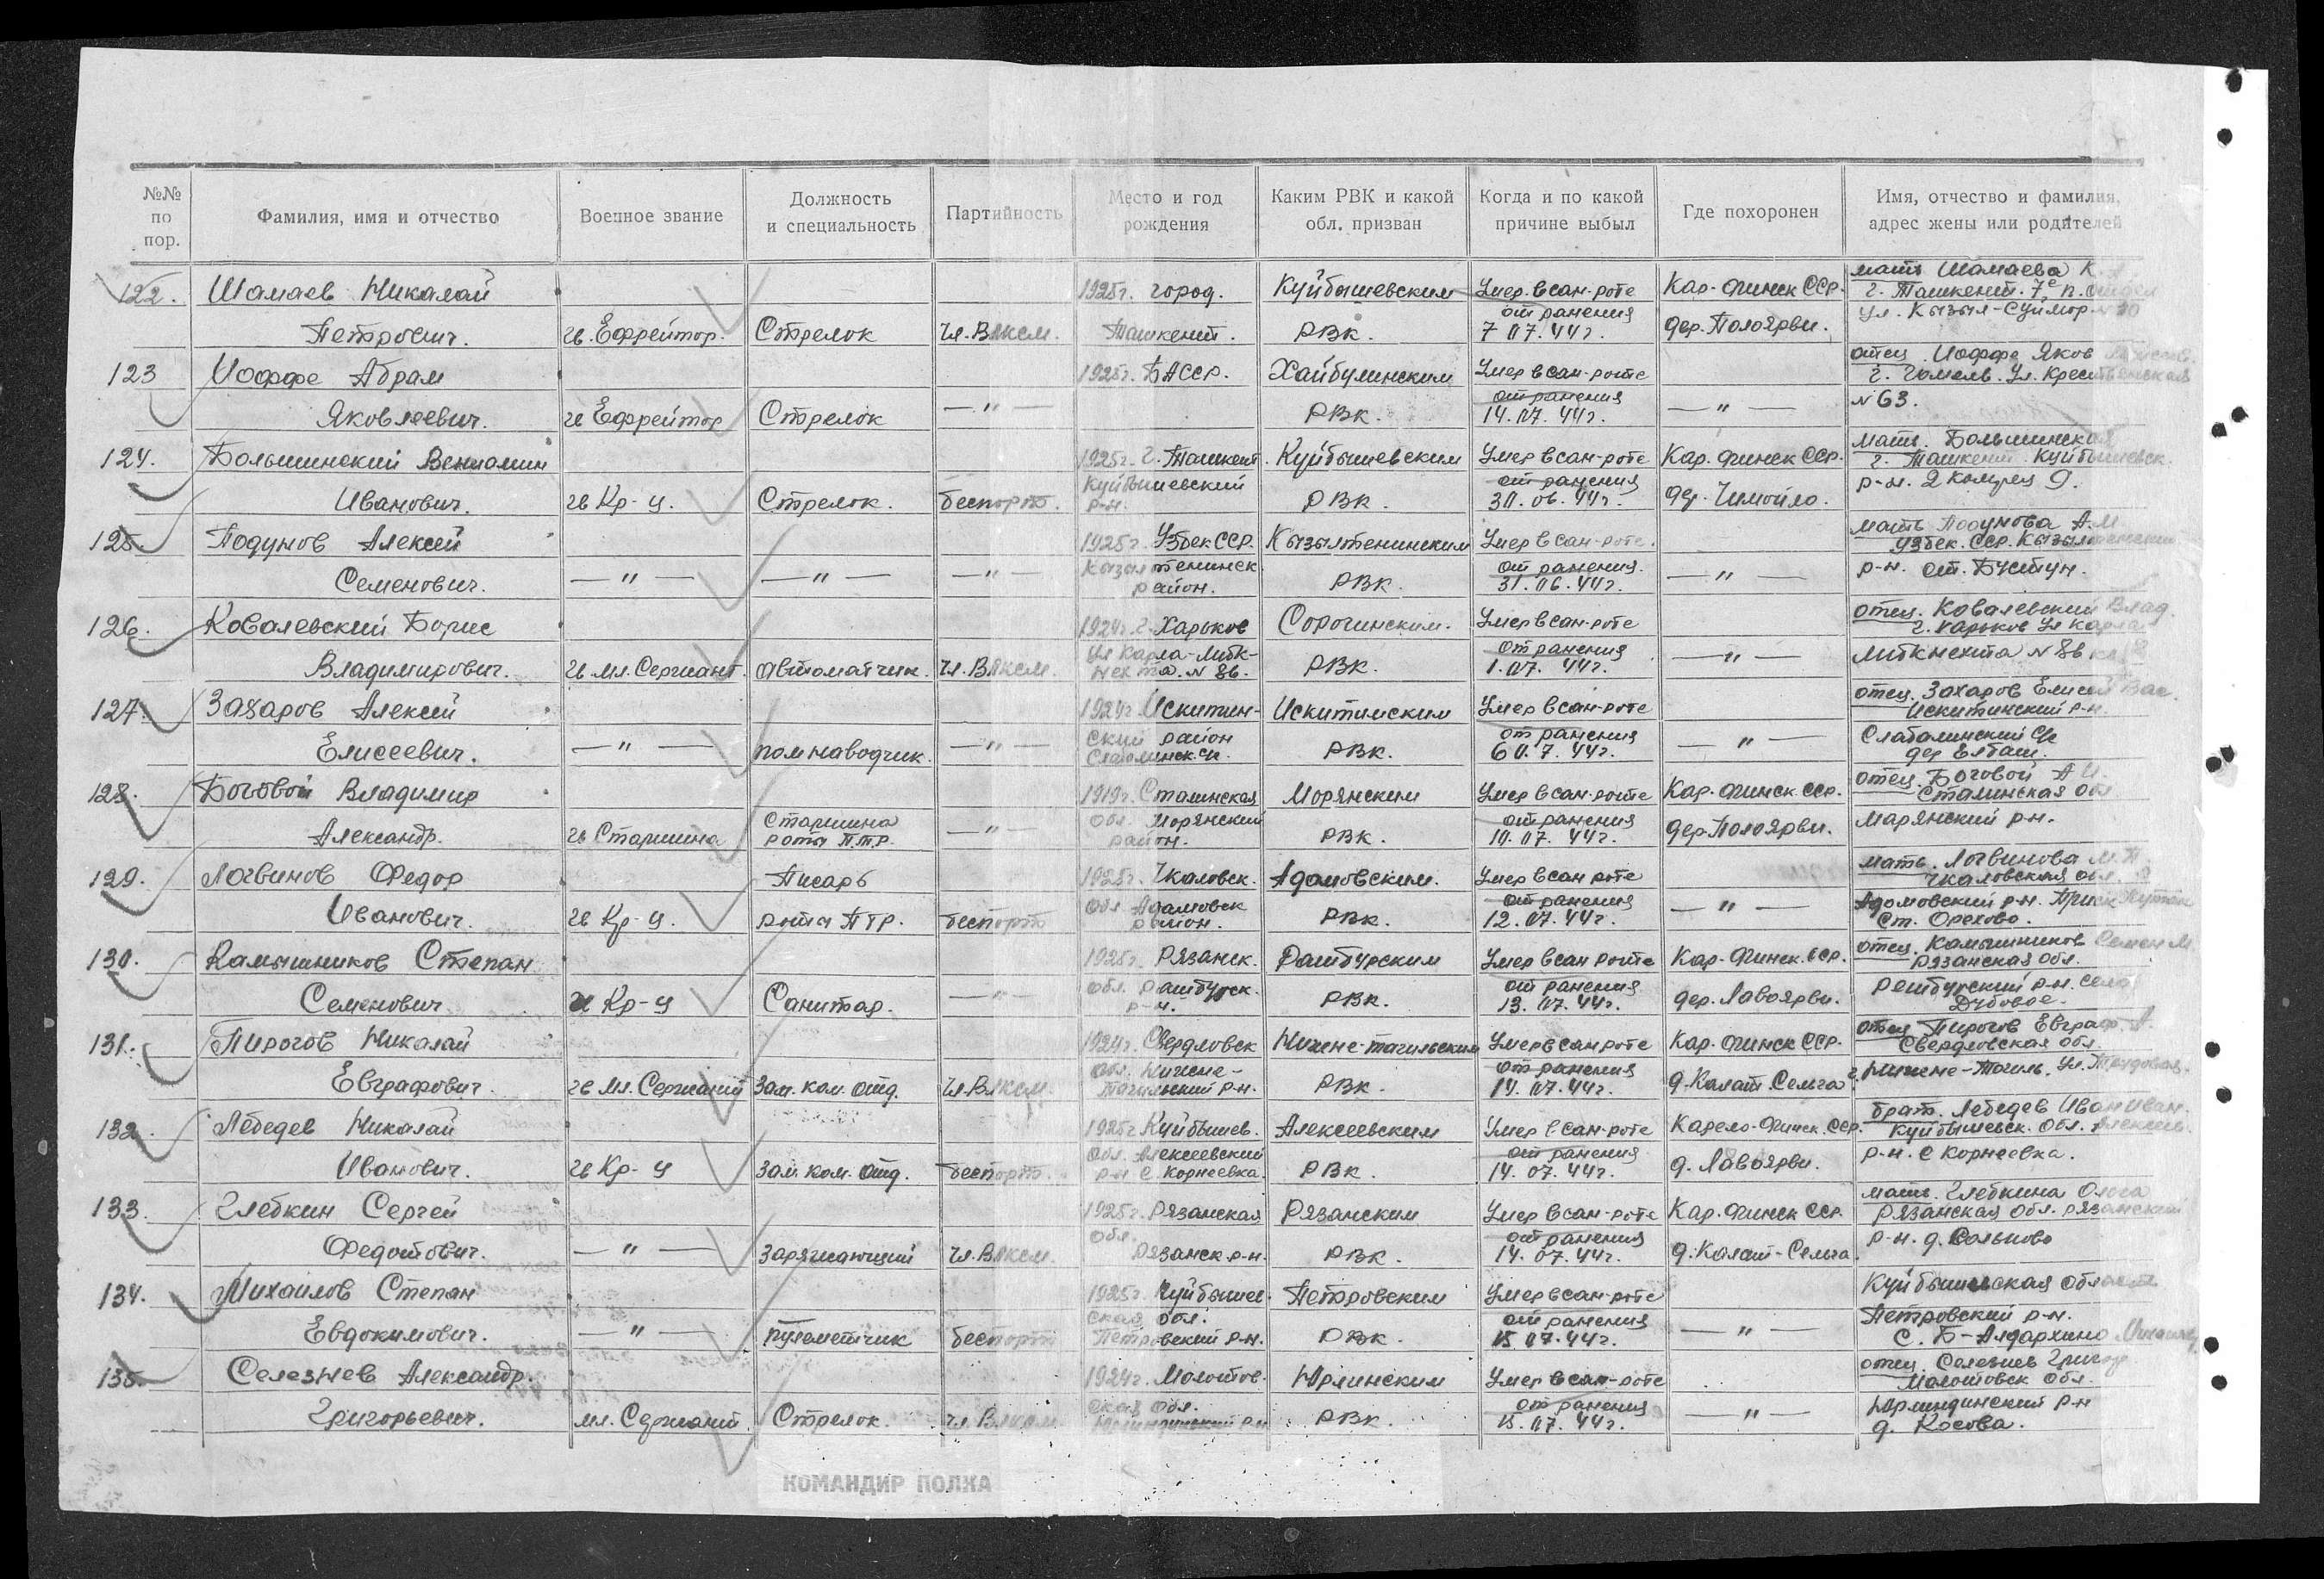 №№ по пор. Фамилия, имя и отчество Военное звание Должность и специальность Партийность Место и год рождения Каким РВК и какой обл. призван Когда и по какой причине выбыл Где похоронен Имя, отчество и фамилия, адрес жены или родителей
122. Шамаев Николай 1925г. город. Куйбышевским Умер. в сан-роте Кар-Финск ССР. мать Шамаева К.
г. Ташкент. 7е п.
Петрович. гв. Ефрейтор. Стрелок Чл. ВЛКСМ. Ташкент. РВК. от ранения 7 07.44г. дер. Полоярви. ул. Кызыл-
123 Иоффе Абрам 1925г. БАССР. Хайбулинским Умер в сан-роте отец. Иоффе Яков
г. Гомель. Ул. Крестьянская
Яковлевич. гв Ефрейтор Стрелок — " — РВК. от ранения 14.07.44г. — " — №63.
124. Большинский Вениамин 1925г. г. Ташкент. Куйбышевским Умер в сан-роте Кар. Финск ССР. мать. Большинская
г. Ташкент Куйбышевск.
Иванович. гв Кр-ц. Стрелок. беспарт. Куйбышевский р-н. РВК. от ранения 30.06.44г. р-н. 2
125. Подунов Алексей 1925г. Узбек ССР. Кызылтепинским Умер в сан-роте. мать Подунова А.М
Узбек. ССР.
Семенович. — " — — " — — " — район. РВК. от ранения. 31.06.44г. — " — р-н. ст. Бустун.
126. Ковалевский Борис 1924г. г. Харьков Сорочинским. Умер в сан-роте отец. Ковалевский Влад.
г. Харьков Ул Карла
Владимирович. гв мл. Сержант. автоматчик. Чл. ВЛКСМ. Ул Карла-Либкнехта. № 86. РВК. от ранения 1.07.44г. — " — Либкнехта №86
127. Захаров Алексей 1924г Искитим- Искитимским Умер в сан-роте отец. Захаров Елисей Вас.
Искитимский р-н.
Елисеевич. — " — пом наводчик. — " — ский район РВК. от ранения 6 0.7.44г. — " —
дер Елбаш.
128. Боговой Владимир 1919г. Сталинская Морянским Умер в сан-роте Кар-Финск. ССР. отец Боговой А И.
Сталинская обл
Александр. гв Старшина Старшина роты П.Т.Р. — " — Обл. Морянский район. РВК. от ранения 10.07.44г. дер. Полоярви. Марянский р-н.
129. Логвинов Федор Писарь 1925г. Чкаловск. Адамовским. Умер в сан роте мать. Логвинова М.П.
Чкаловская обл.
Иванович. гв Кр-ц. роты ПТР. беспарт Обл. Адамовск район. РВК. от ранения 12.07.44г. — " — Адамовский р-н.
ст. Орехово.
130. Камышников Степан 1925г. Рязанск. Рашбурским Умер в сан роте Кар-Финск. ССР. отец. Камышников Семен М
Рязанская обл.
Семенович гв Кр-ц Санитар. — " — Обл. Рашбурск. р-н. РВК. от ранения 13.07.44г. дер. Лавоярви. р-н. село
Дубовое.
131. Пирогов Николай 1924г. Свердловск Нижне-тагильским Умер в сан роте Кар. Финск ССР. отец Пирогов Евграф. А.
Свердловская обл.
Евграфович. гв мл. Сержант Зам. ком. отд. Чл. ВЛКСМ. Обл. Нижне-Тагильский р-н. РВК. от ранения 14.07.44г. д. Колат. Сельга г. Нижне-Тагиль. Ул. Трудовая.
132 Лебедев Николай 1925г Куйбышев. Алексеевским Умер в сан-роте Карело-Финск. ССР. брат. Лебедев Иван Иван.
Куйбышевск. Обл. Алексеев.
Иванович. гв Кр-ц Зам. ком. отд. беспарт. Обл. Алексеевский р-н с. Корнеевка. РВК. от ранения 14.07.44г. д. Лавоярви. р-н. с Корнеевка.
133. Глебкин Сергей 1925г. Рязанская Рязанским Умер в сан-роте Кар. Финск ССР. мать. Глебкина Ольга
Рязанская обл. Рязанский
Федотович. — " — заряжающий Чл. ВЛКСМ. Обл. Рязанск р-н. РВК. от ранения 14.07.44г. д. Колат-Сельга. р-н. д.
134. Михайлов Степан 1925г. Куйбышев- Петровским Умер в сан-роте Куйбышевская область
Евдокимович. — " — пулеметчик беспарт ская обл. Петровский р-н. РВК. от ранения 15.07.44г. — " — Петровский р-н.
с. Б-
135. Селезнев Александр. 1924г. Молотов- Юрлинским Умер в сан-роте отец. Селезнев Григор
Молотовск обл.
Григорьевич. мл. Сержант Стрелок. чл ВЛКСМ ская обл. РВК. от ранения 15.07.44г. — " — р-н
д. Косова.
КОМАНДИР ПОЛКА